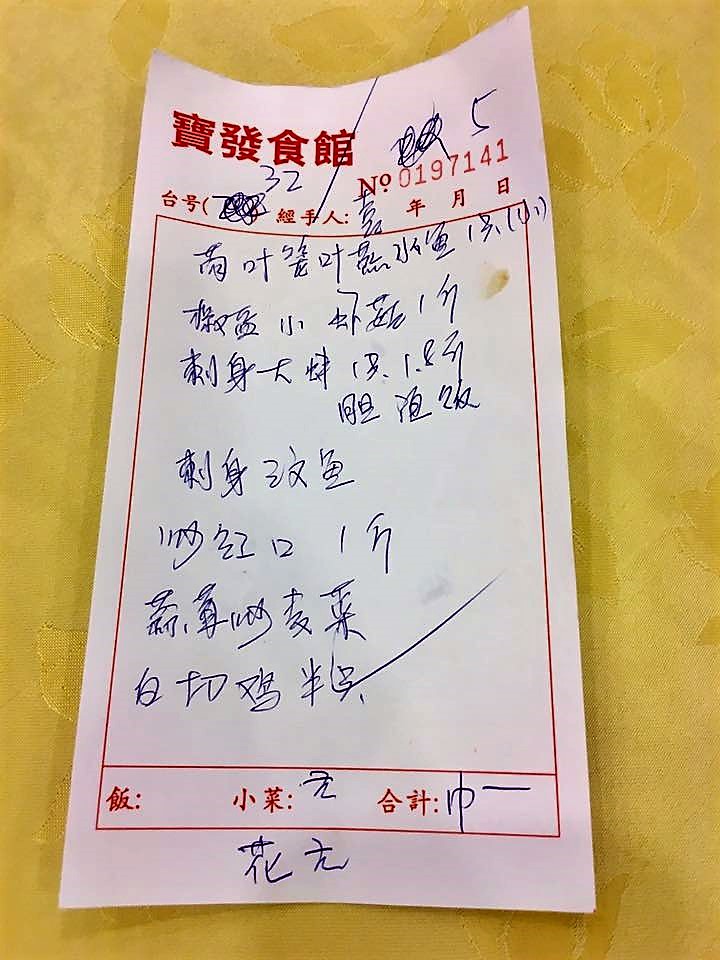 寶發食館 5
32 № 0197141
台号( 經手人: 年 月 日
荷叶 叶蒸水鱼1只(小)
椒盐小虾菇1斤
刺身大蚌1只1.8斤
胆 饭
刺身 鱼
炒红口 1斤
蒜 炒麦菜
白切鸡半只
飯: 小菜: 合計:
花